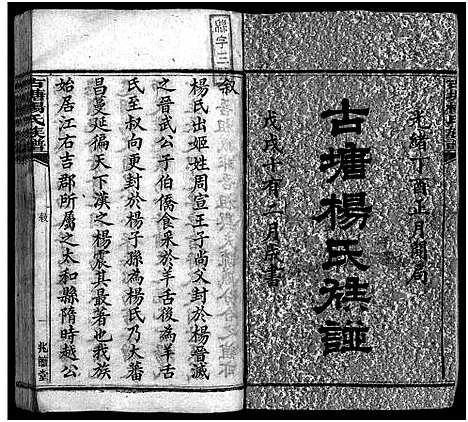 光緒丁酉正月開局
古塘楊氏族譜
戊戌十有二月成書
敘
楊氏出姬姓周宣王子尚父封於楊晉滅
之晉武公子伯僑食采於羊舌後為羊舌
氏至叔向更封於楊子孫為楊氏乃大蕃
昌蔓延徧天下漢之楊震其最著也我族
始居江右吉郡所屬之太和縣隋時越公
古塘楊氏族譜
敘
一